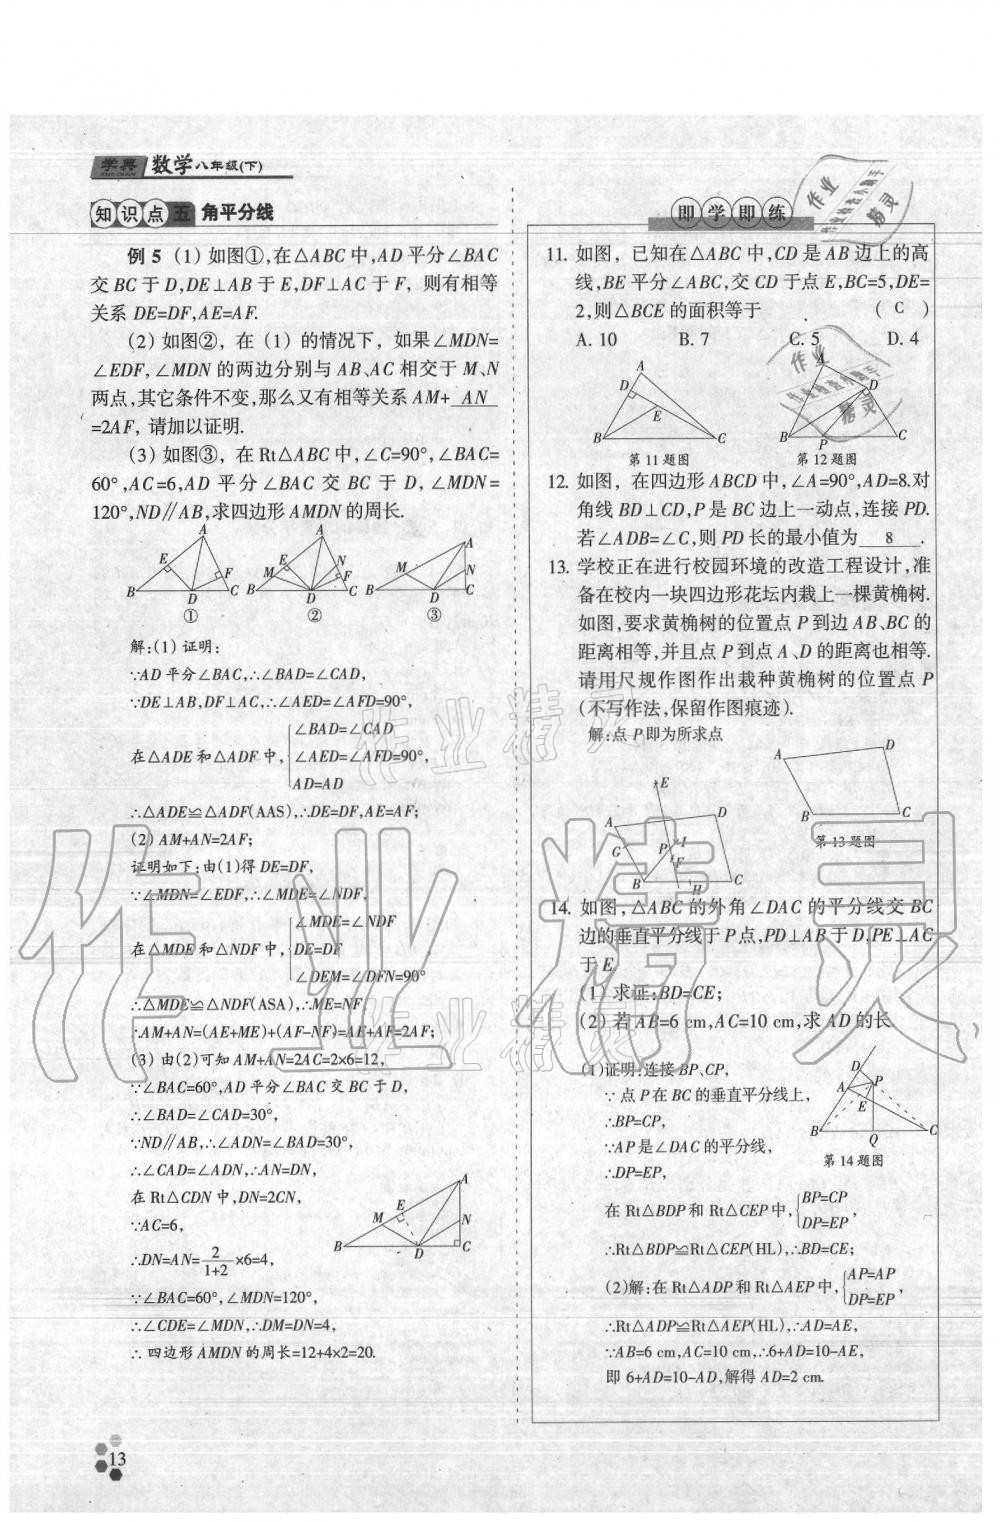 学典 数学八年级(下)
知识点五 角平分线
例 5 (1) 如图①,在△ABC 中,AD 平分∠BAC
交 BC 于 D,DE⊥AB 于 E,DF⊥AC 于 F, 则有相等
关系 DE=DF,AE=AF.
(2) 如图②, 在 (1) 的情况下, 如果∠MDN=
∠EDF,∠MDN 的两边分别与 AB、AC 相交于 M、N
两点,其它条件不变,那么又有相等关系 AM+ AN
=2AF, 请加以证明.
(3) 如图③, 在 Rt△ABC 中,∠C=90°,∠BAC=
60°,AC=6,AD 平分∠BAC 交 BC 于 D,∠MDN=
120°,ND∥AB,求四边形 AMDN 的周长.
A E F B D C ①
A E N M F B D C ②
A M N B D C ③
解:(1) 证明:
∵AD 平分∠BAC,∴∠BAD=∠CAD,
∵DE⊥AB,DF⊥AC,∴∠AED=∠AFD=90°,
在△ADE 和△ADF 中,
∠BAD=∠CAD
∠AED=∠AFD=90°,
AD=AD
∴△ADE≌△ADF(AAS),∴DE=DF,AE=AF;
(2) AM+AN=2AF;
证明如下:由(1)得 DE=DF,
∵∠MDN=∠EDF,∴∠MDE=∠NDF,
在△MDE 和△NDF 中,
∠MDE=∠NDF
DE=DF
∠DEM=∠DFN=90°
∴△MDE≌△NDF(ASA),∴ME=NF,
∴AM+AN=(AE+ME)+(AF-NF)=AE+AF=2AF;
(3) 由(2)可知 AM+AN=2AC=2×6=12,
∵∠BAC=60°,AD 平分∠BAC 交 BC 于 D,
∴∠BAD=∠CAD=30°,
∵ND∥AB,∴∠ADN=∠BAD=30°,
∴∠CAD=∠ADN,∴AN=DN,
在 Rt△CDN 中,DN=2CN,
∵AC=6,
∴DN=AN=2/(1+2)×6=4,
∵∠BAC=60°,∠MDN=120°,
∴∠CDE=∠MDN,∴DM=DN=4,
∴四边形 AMDN 的周长=12+4×2=20.
A E M N B D C
13
即学即练
11. 如图, 已知在△ABC 中,CD 是 AB 边上的高
线,BE 平分∠ABC,交 CD 于点 E,BC=5,DE=
2,则△BCE 的面积等于 ( C )
A. 10 B. 7 C. 5 D. 4
A D E B C
第 11 题图
A D B P C
第 12 题图
12. 如图, 在四边形 ABCD 中,∠A=90°,AD=8.对
角线 BD⊥CD,P 是 BC 边上一动点,连接 PD.
若∠ADB=∠C,则 PD 长的最小值为 8 .
13. 学校正在进行校园环境的改造工程设计,准
备在校内一块四边形花坛内栽上一棵黄桷树.
如图,要求黄桷树的位置点 P 到边 AB、BC 的
距离相等,并且点 P 到点 A、D 的距离也相等.
请用尺规作图作出栽种黄桷树的位置点 P
(不写作法,保留作图痕迹).
解:点 P 即为所求点
E A D G P I F B H C
A D B C
第 13 题图
14. 如图,△ABC 的外角∠DAC 的平分线交 BC
边的垂直平分线于 P 点,PD⊥AB 于 D,PE⊥AC
于 E.
(1) 求证:BD=CE;
(2) 若 AB=6 cm,AC=10 cm,求 AD 的长.
(1)证明:连接 BP、CP,
∵ 点 P 在 BC 的垂直平分线上,
∴BP=CP,
∵AP 是∠DAC 的平分线,
∴DP=EP,
D P A E B Q C
第 14 题图
在 Rt△BDP 和 Rt△CEP 中,
BP=CP
DP=EP,
∴Rt△BDP≌Rt△CEP(HL),∴BD=CE;
(2)解:在 Rt△ADP 和 Rt△AEP 中,
AP=AP
DP=EP,
∴Rt△ADP≌Rt△AEP(HL),∴AD=AE,
∵AB=6 cm,AC=10 cm,∴6+AD=10-AE,
即 6+AD=10-AD,解得 AD=2 cm.
作业精灵
作业精灵
作业精灵